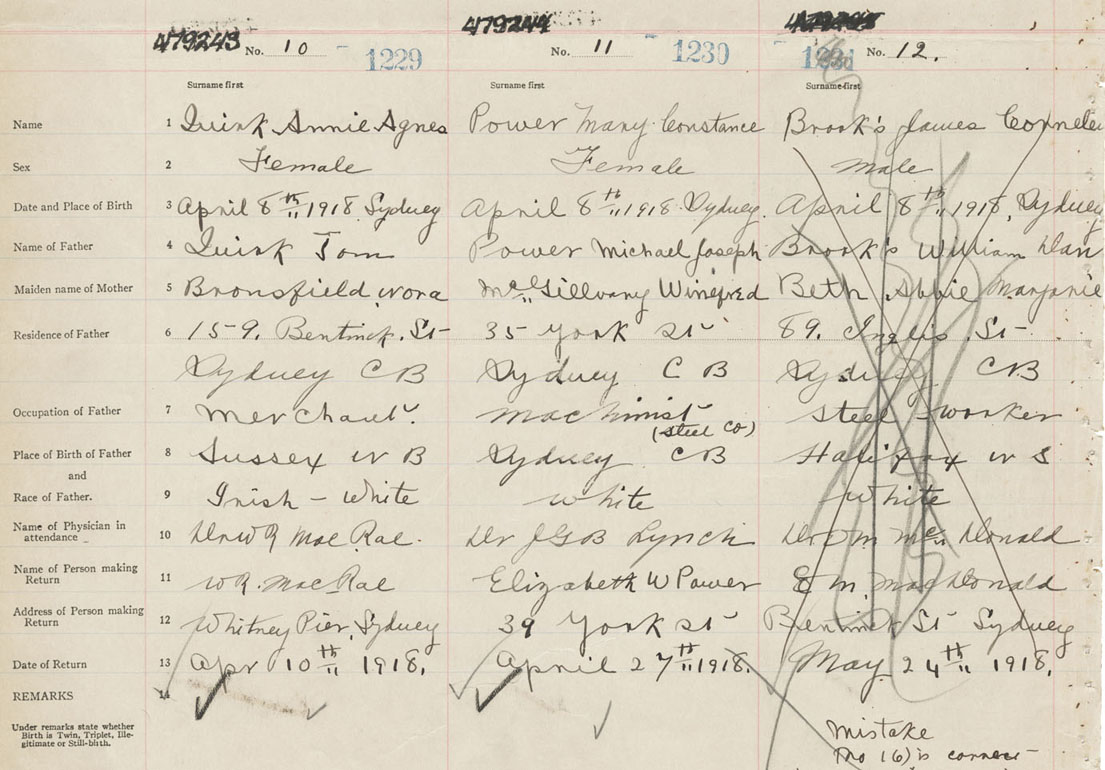 479243 No. 10 1229 479244 No. 11 1230 No. 12.
Surname first Surname first Surname first
Name 1 Quirk Annie Agnes Power Mary Constance Brook's James
Sex 2 Female Female male
Date and Place of Birth 3 April 8th 1918 Sydney April 8th 1918 Sydney. April 8th 1918, Sydney
Name of Father 4 Quirk Tom Power Michael Joseph Brook's William
Maiden name of Mother 5 Bronsfield Nora McGillvary Winifred Beth Abbie Marjorie
Residence of Father 6 159. Bentinck St 35 York St 89. Inglis St
Sydney C B Sydney C B Sydney C B
Occupation of Father 7 Merchant Machinist (Steel Co) Steel worker
Place of Birth of Father 8 Sussex N B Sydney C B Halifax N S
and
Race of Father. 9 Irish - White White White
Name of Physician in attendance 10 Dr W R MacRae. Dr J G B Lynch Dr McDonald
Name of Person making Return 11 W R. MacRae Elizabeth W Power M MacDonald
Address of Person making Return 12 Whitney Pier, Sydney 39 York St Bentinck St Sydney
Date of Return 13 Apr 10th 1918. April 27th 1918. May 24th 1918.
REMARKS 14
Under remarks state whether Birth is Twin, Triplet, Ille-
gitimate or Still-birth.
Mistake
No 16) is correct